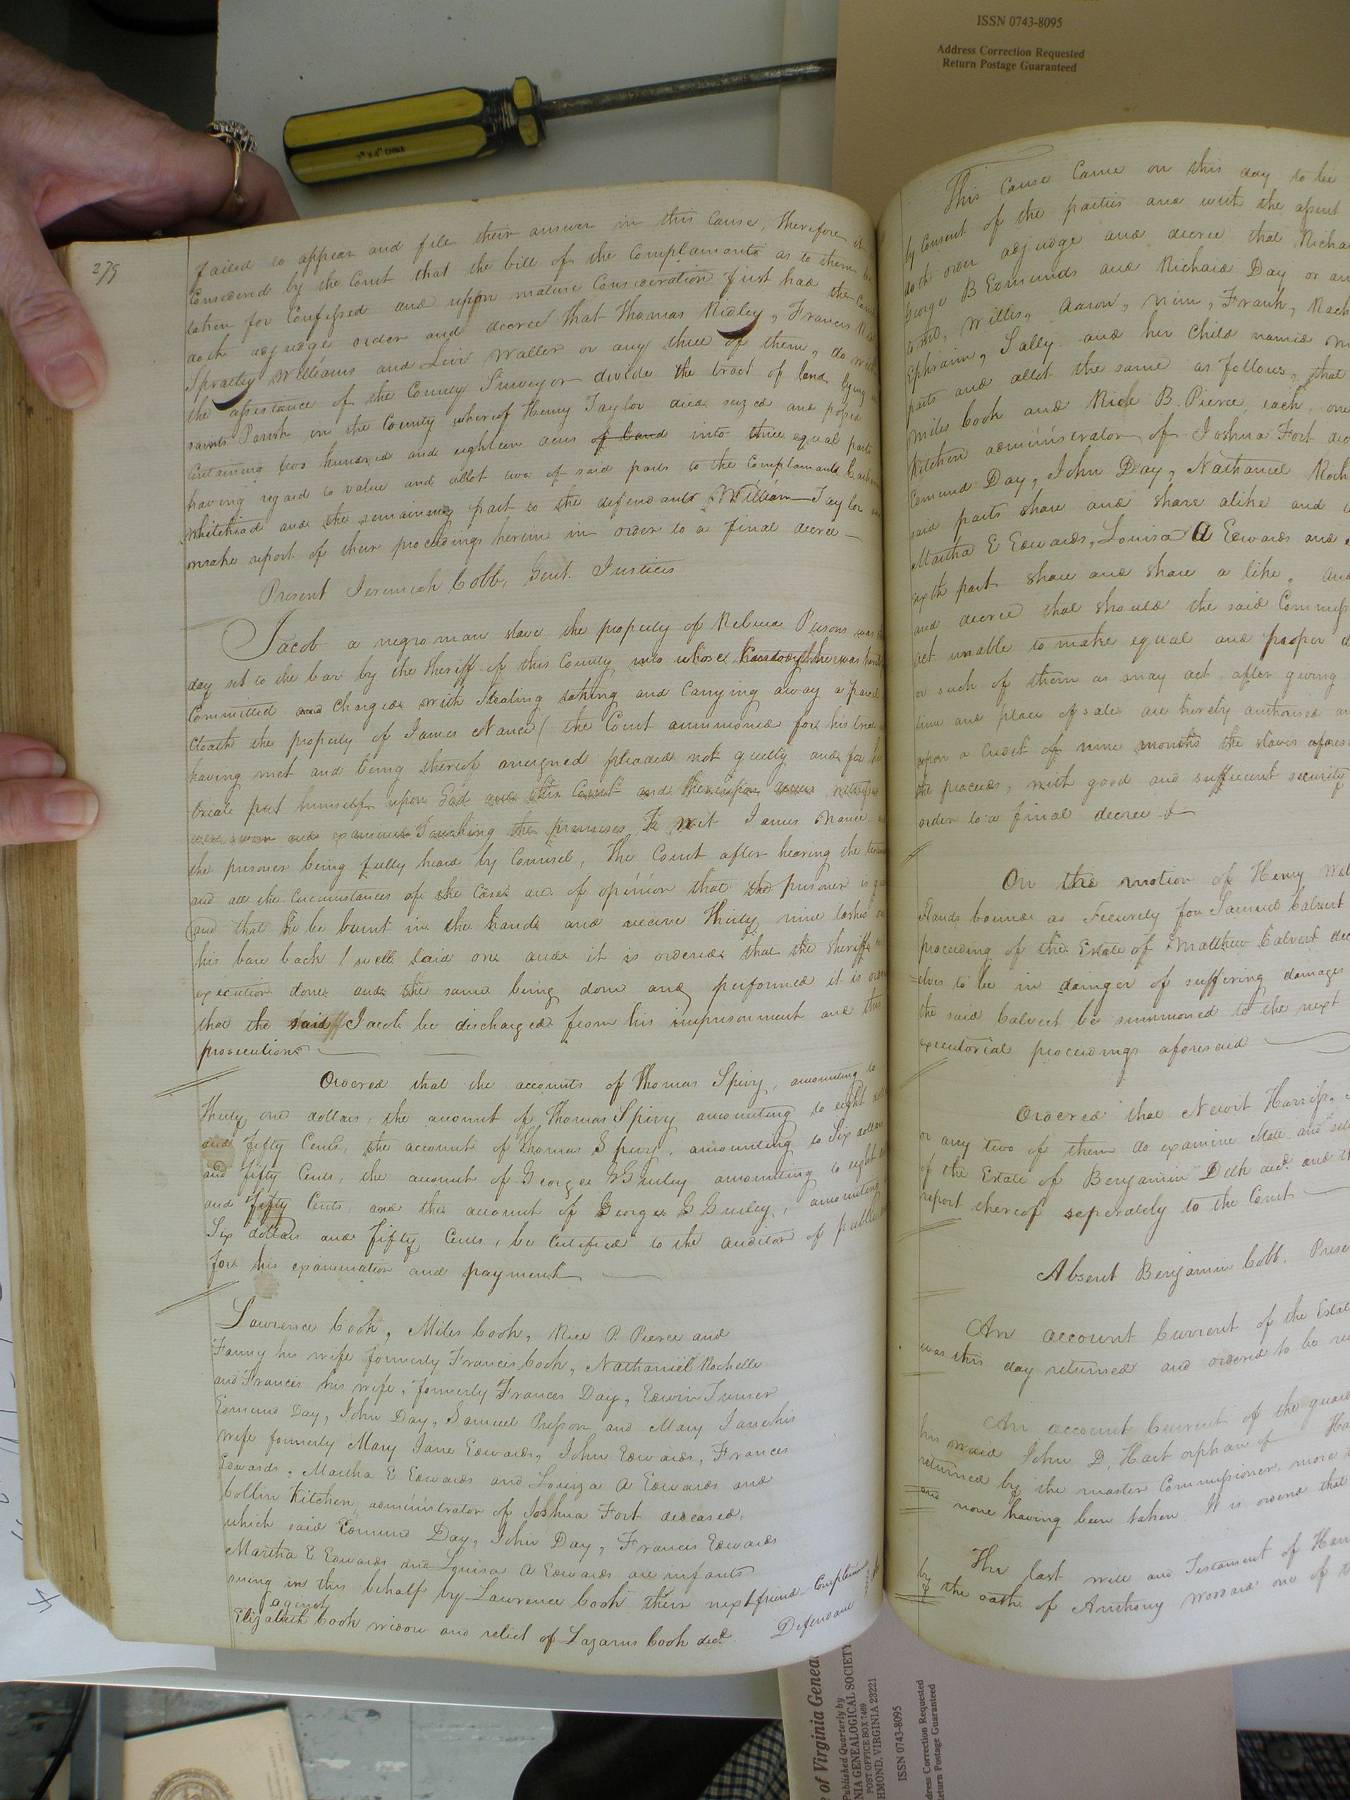 ISSN 0743-8095
Address Correction Requested
Return Postage Guaranteed
279
failed to appear and file their answer in this Cause, Therefore it
Considered by the Court that the bill of the Complainants as to them be
taken for Confessed and upon mature Consideration first had the Court
doth adjudge order and decree that Thomas Ridley, Francis
Spratley Williams and Levi Waller or any three of them, do with
the assistance of the County Surveyor divide the tract of land lying in
saints Parish in the County whereof Henry Taylor died seized and possd
Containing two hundred and eighteen acres of land into three equal parts
having regard to value and allot two of said parts to the Complainants
Whitehead and the remaining part to the defendants William Taylor and
make report of their proceedings herein in order to a final decree
Present Jeremiah Cobb, Gent. Justices
Jacob a negro man slave the property of Persons was
day set to the bar by the Sheriff of this County, into whose Custody he was
Committed and charged with Stealing taking and Carrying away a parcel
Cloath the property of James Nance (the Court summoned for his trial
having met and being thereof arraigned pleaded not guilty and for his
trial put himself upon God and this Court and thereupon
were sworn and examined Touching the premises To wit James Nance
the prisoner being fully heard by Counsel, The Court after hearing the
and all the Circumstances of the Case are of opinion that the prisoner is
and that he be burnt in the hand and receive Thirty nine lashes on
his bare back well laid on and it is ordered that the Sheriff
execution done and the same being done and performed it is
that the said Jacob be discharged from his imprisonment and this
prosecution
Ordered that the accounts of Thomas Spivy, amounting to
Thirty one dollars, the amount of Thomas Spivy amounting to eight
and fifty Cents, the account of Thomas Spivy, amounting to Six dollars
and fifty Cents, the account of George G Gurley amounting to eight
and fifty Cents, and the account of George G Gurley, amounting
Six dollars and fifty Cents, be Certified to the auditor of public
for his examination and payment
Lawrence Cook, Miles Cook, Rice P. Pierce and
Fanny his wife formerly Frances Cook, Nathaniel Rochelle
and Frances his wife, formerly Frances Day, Edwin Turner
Edmund Day, John Day, Samuel and Mary Jane his
wife formerly Mary Jane Edwards, John Edwards, Frances
Edwards, Martha E Edwards and Louiza A Edwards and
Collin Kitchen, administrator of Joshua Fort deceased,
which said Edmund Day, John Day, Francis Edwards
Martha E Edwards and Louisa A Edwards are infants
suing in this behalf by Lawrence Cook their next friend Complainants
against
Elizabeth Cook widow and relict of Lazarus Cook decd. Defendant
This Cause Came on this day to be
by Consent of the parties and with the assent
doth order adjudge and decree that Richard
George B Edmunds and Richard Day or any
to wit, Willis, Aaron, Nim, Frank,
Ephraim, Sally and her Child named
parts and allot the same as follows, that
Miles Cook and Rice B. Pierce, each, one
Kitchen administrator of Joshua Fort
Edmund Day, John Day, Nathaniel Roch
said parts share and share alike and
Martha E Edwards, Louisa A Edwards and
sixth part share and share a like. And
and decree that should the said Commiss
act unable to make equal and proper
or such of them as may act after giving
time and place of sale are hereby authorised
upon a credit of nine months the slaves afores
the proceeds, with good and sufficient security
order to a final decree
On the motion of Henry
stands bound as Security for Samuel Calvert
proceeding of the Estate of Matthew Calvert dec
elves to be in danger of suffering damages
the said Calvert be summoned to the next
executorial proceedings aforesaid
Ordered that Newit Harris,
or any two of them do examine state and
of the Estate of Benjamin decd. and
report thereof seperately to the Court
Absent Benjamin Cobb. Prese
An account Current of the Estate
was this day returned and ordered to be re
An account Current of the guar
his ward John D. Hart orphan of
returned by the master Commissioner, more
and none having been taken It is ordered that
The last will and Testament of
by the oath of Anthony Woodard one of
of Virginia Genea
Published Quarterly by
NIA GENEALOGICAL SOCIETY
POST OFFICE BOX 7469
HMOND, VIRGINIA 23221
ISSN 0743-8095
dress Correction Requested
eturn Postage Guaranteed